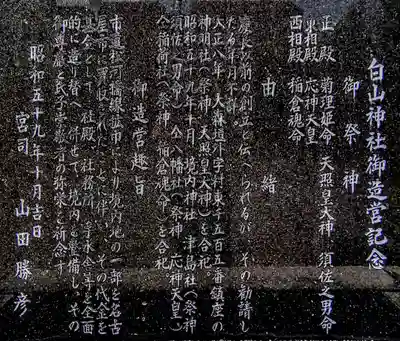 白山神社御造営記念
御祭神
正殿 菊理姫命 天照皇大神 須佐之男命
東相殿 応神天皇
西相殿 稲倉魂命
由緒
慶長以前の創立と伝へられるが、その勧請し
たる年月不詳。
大正八年 大森垣外字村東千五百五番鎮座の
神明社(祭神 天照皇大神)を合祀
昭和五十九年十月 境内神社 津島社(祭神
須佐之男命) 八幡社(祭神 応神天皇)
稲荷社(祭神 稲倉魂命)を合祀
御造営趣旨
市道松河橋線拡巾により境内地の一部を名古
屋市に買収されたことに伴い、その代金を
基金として、社殿、社務所、手水舎等を全面
的に造り替へ、併せて境内を整備し、その
御尊厳と氏子崇敬者の弥栄を祈念す
昭和五十九年十月吉日
宮司 山田勝彦